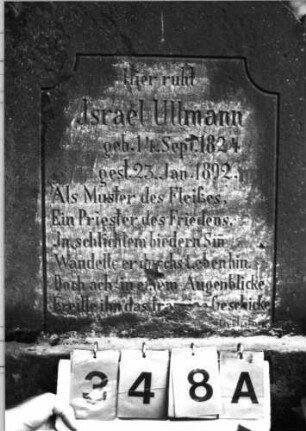 Hier ruht
Israel Ullmann
geb. 14. Sept. 1824
gest. 23. Jan. 1892.
Als Muster des Fleißes,
Ein Priester des Friedens,
In schlichtem biedern Sin
Wandelte er durchs Leben hin.
Doch ach! in einem Augenblicke
Ereilte ihn das Geschicke
348A